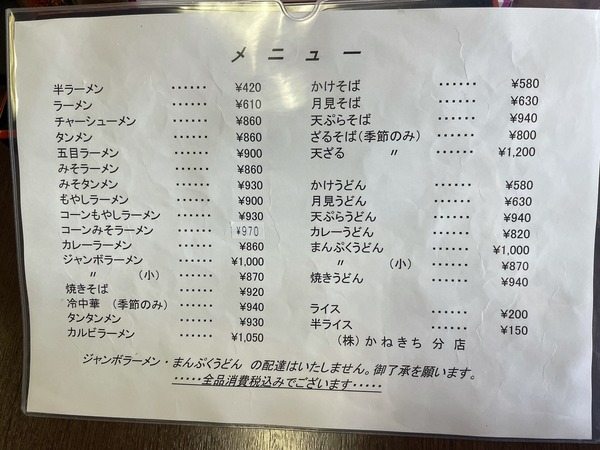 メニュー
半ラーメン ‥‥‥ ¥420
ラーメン ‥‥‥ ¥610
チャーシューメン ‥‥‥ ¥860
タンメン ‥‥‥ ¥860
五目ラーメン ‥‥‥ ¥900
みそラーメン ‥‥‥ ¥860
みそタンメン ‥‥‥ ¥930
もやしラーメン ‥‥‥ ¥900
コーンもやしラーメン ‥‥‥ ¥930
コーンみそラーメン ‥‥‥ ¥970
カレーラーメン ‥‥‥ ¥860
ジャンボラーメン ‥‥‥ ¥1,000
〃 (小) ‥‥‥ ¥870
焼きそば ‥‥‥ ¥920
冷中華 (季節のみ) ‥‥‥ ¥940
タンタンメン ‥‥‥ ¥930
カルビラーメン ‥‥‥ ¥1,050
かけそば ‥‥‥ ¥580
月見そば ‥‥‥ ¥630
天ぷらそば ‥‥‥ ¥940
ざるそば(季節のみ) ‥‥‥ ¥800
天ざる 〃 ‥‥‥ ¥1,200
かけうどん ‥‥‥ ¥580
月見うどん ‥‥‥ ¥630
天ぷらうどん ‥‥‥ ¥940
カレーうどん ‥‥‥ ¥820
まんぷくうどん ‥‥‥ ¥1,000
〃 (小) ‥‥‥ ¥870
焼きうどん ‥‥‥ ¥940
ライス ‥‥‥ ¥200
半ライス ‥‥‥ ¥150
(株)かねきち 分店
ジャンボラーメン・まんぷくうどん の配達はいたしません。御了承を願います。
‥‥・全品消費税込みでございます・‥‥